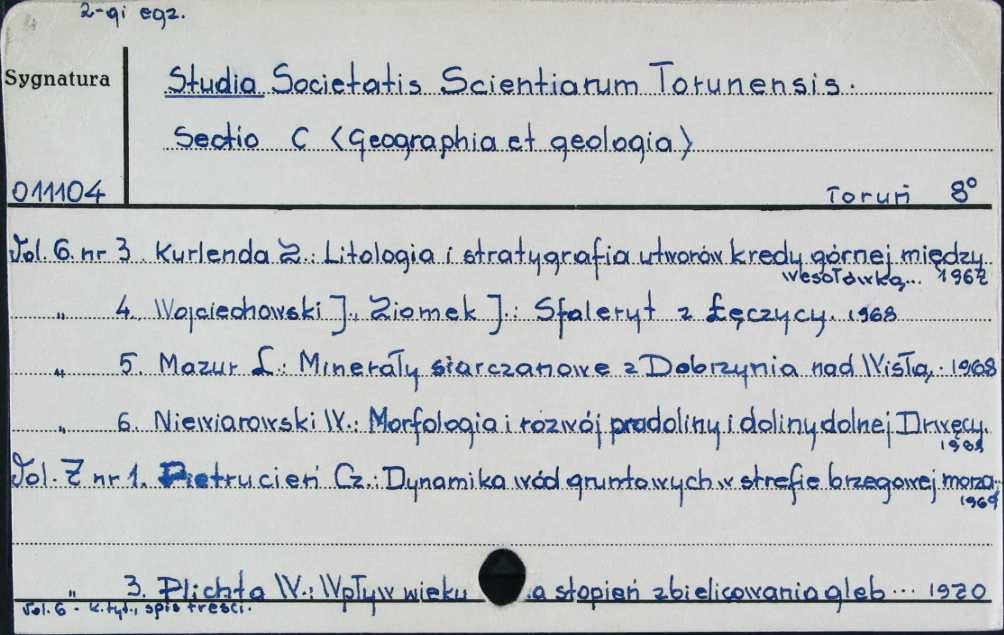 2-gi egz.
Sygnatura
Studia Societatis Scientiarum Torunensis.
Sectio C <Geographia et geologia>
011104
Toruń 8°
Vol. 6. nr 3. Kurlenda Z.: Litologia i stratygrafia utworów kredy górnej między
Wesołówką... 1967
„ 4. Wojciechowski J., Ziomek J.: Sfaleryt z Łęczycy. 1968
„ 5. Mazur L.: Minerały siarczanowe z Dobrzynia nad Wisłą. 1968
„ 6. Niewiarowski W.: Morfologia i rozwój pradoliny i doliny dolnej Drwęcy.
1968
Vol. 7 nr 1. Pietrucień Cz.: Dynamika wód gruntowych w strefie brzegowej morza.
1969
„ 3. Plichta W.: Wpływ wieku a stopień zbielicowania gleb... 1970
Vol. 6 - k. tyt., spis treści.